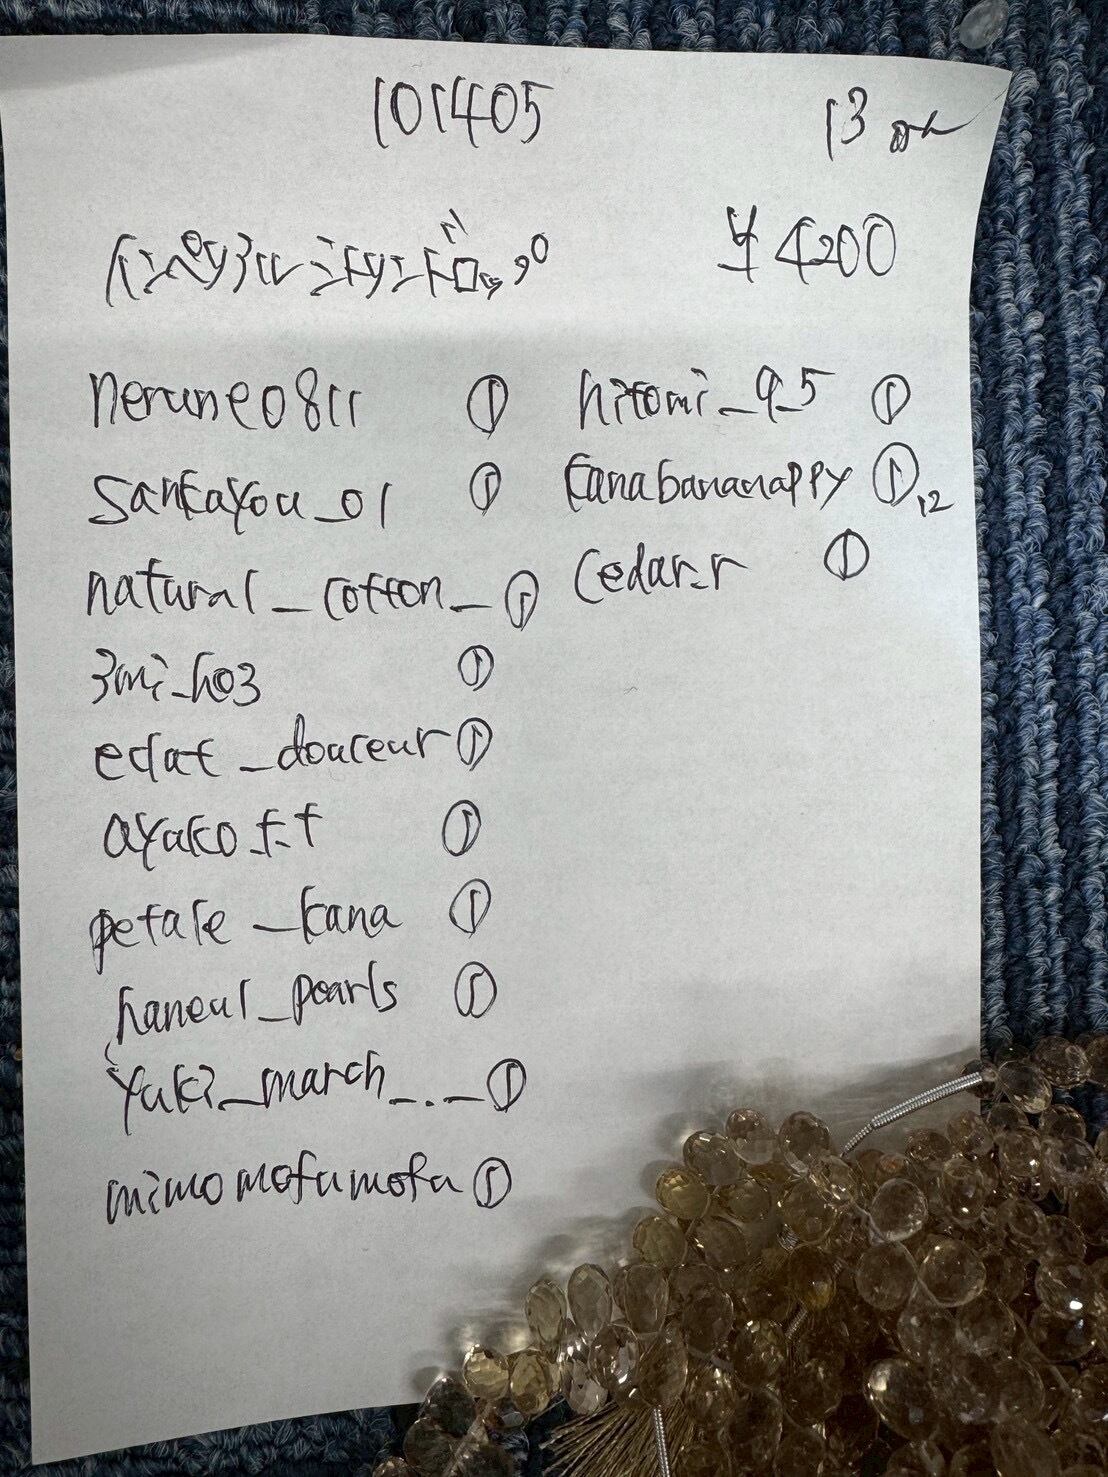 101405
13
インペリアルシャンドロップ
¥4200
nerune0811 ①
sankayou_01 ①
natural_cotton_ ①
3mi_ho3 ①
eclat_douceur ①
ayako.t.t ①
petale_kana ①
haneul_pearls ①
yuki_march_._ ①
mimomofumofu ①
hitomi_9_5 ①
kanabananappy ① 12
cedar.r ①